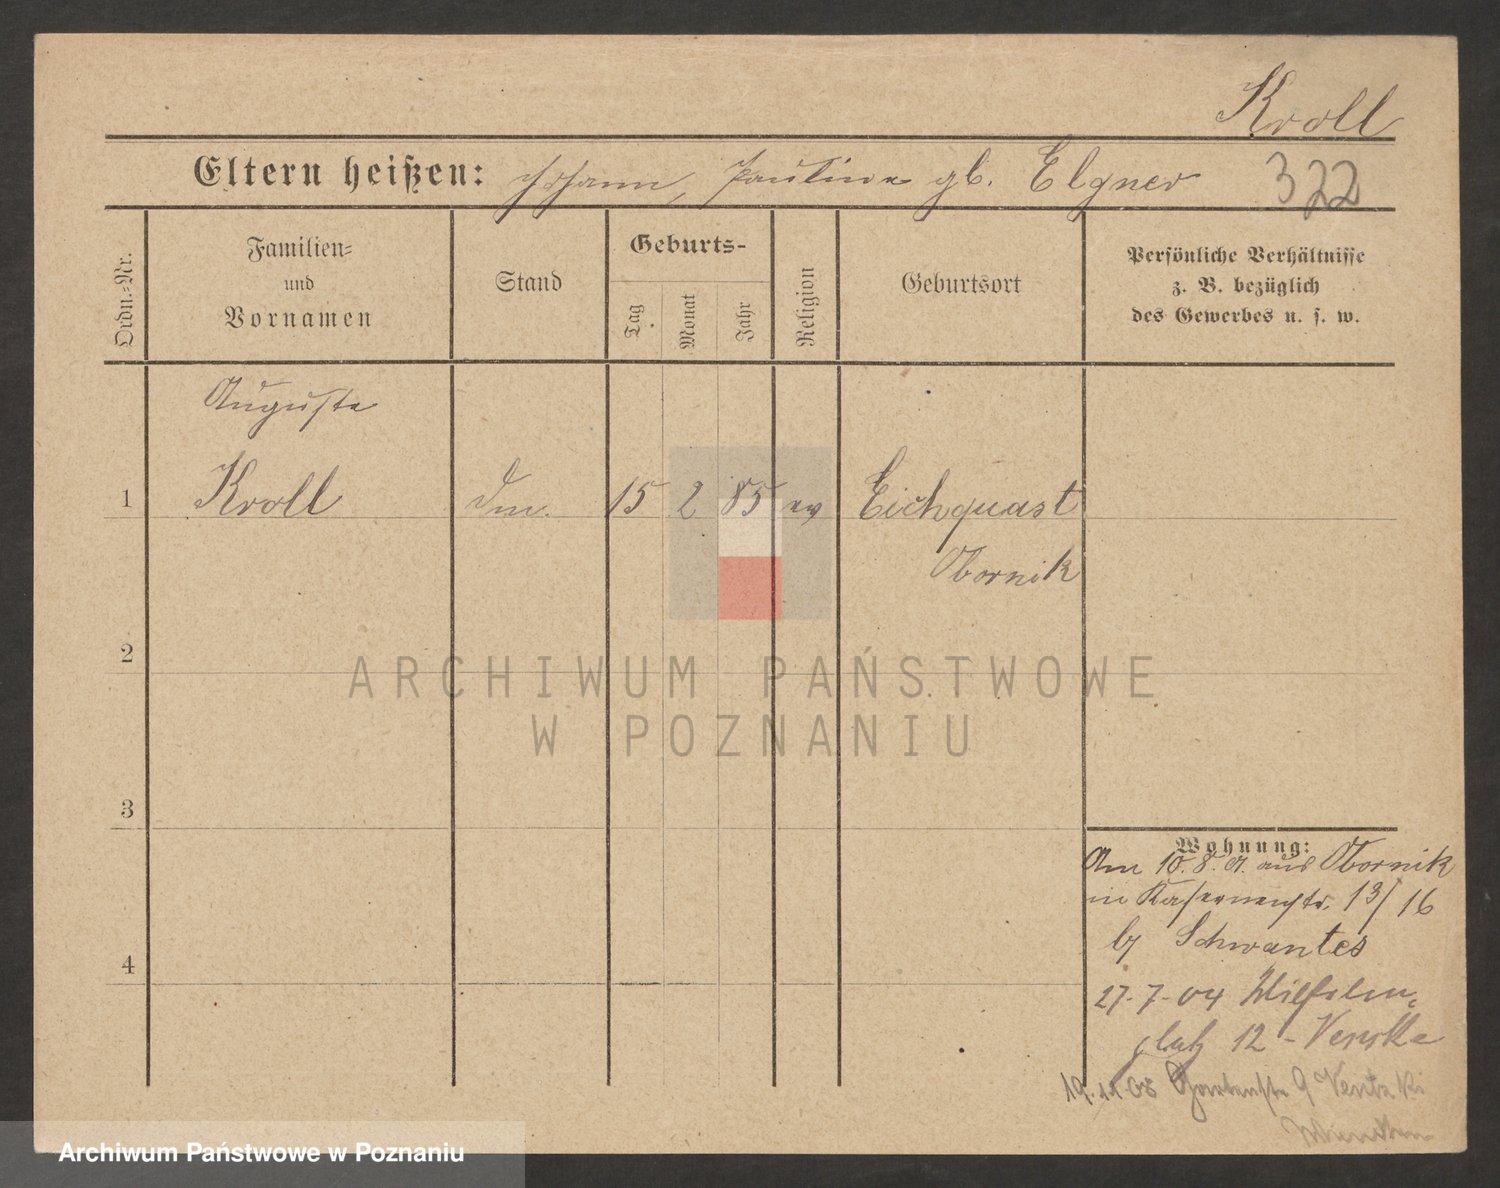 Kroll
Eltern heißen: Johann, Pauline gb. Elgner 322
Ordn.-Nr.
Familien-
und
Vornamen
Stand
Geburts-
Tag
Monat
Jahr
Religion
Geburtsort
Persönliche Verhältnisse
z. B. bezüglich
des Gewerbes u. s. w.
Auguste
1 Kroll 15 2 85 ev Eichquast
Obornik
2
3
4
Wohnung:
Am 10. 8. aus Obornik
in Kasernenstr. 13/16
by Schwantes
27-7-04 Wilhelm-
platz 12 - Venske
19.11.08 Gartenstr 9
ARCHIWUM PAŃSTWOWE
W POZNANIU
Archiwum Państwowe w Poznaniu